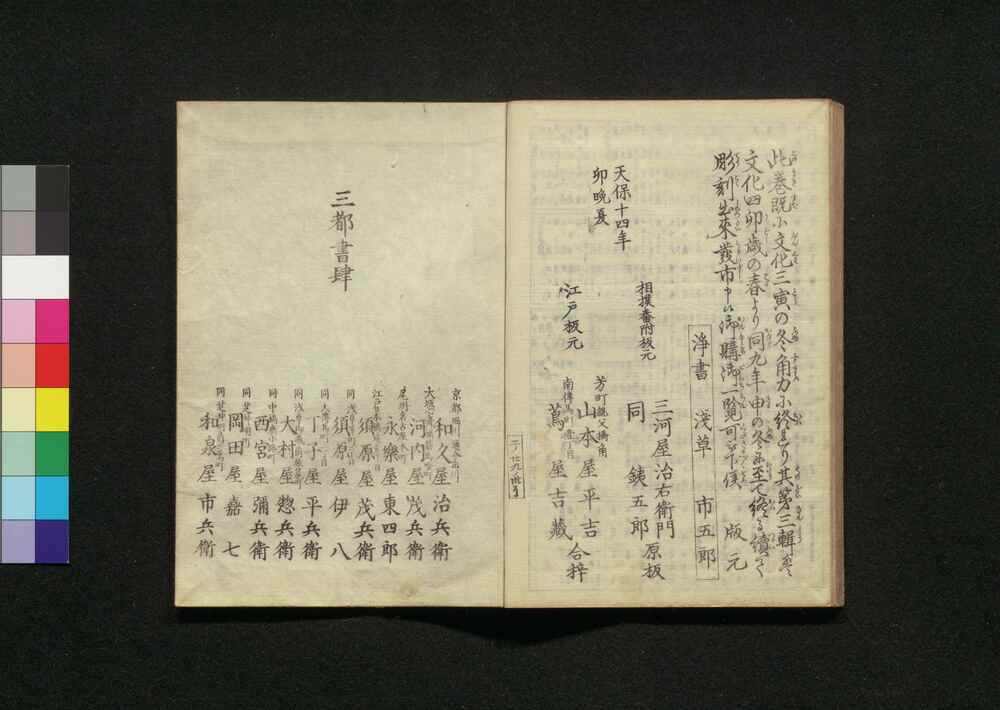 此巻既に文化三寅の冬角力に終れり其第三輯は
文化四卯歳の春より同九年申の冬に至て終る續きて
彫刻出來發市申候御購御一覧可被下候 版元
淨書 淺草 市五郎
天保十四年
卯晩夏
相撲番附板元
三河屋治右衛門
同 銕五郎
原板
江戸板元
芳町親父橋角
山本屋平吉
南傳馬町
蔦屋吉藏
合梓
三都書肆
京都
和久屋治兵衛
大坂
河内屋茂兵衛
尾州名古屋本町
永樂屋東四郎
江戸日本橋
須原屋茂兵衛
同浅草
須原屋伊八
同
丁子屋平兵衛
同
大村屋惣兵衛
同
西宮屋彌兵衛
同
岡田屋嘉七
同
和泉屋市兵衛